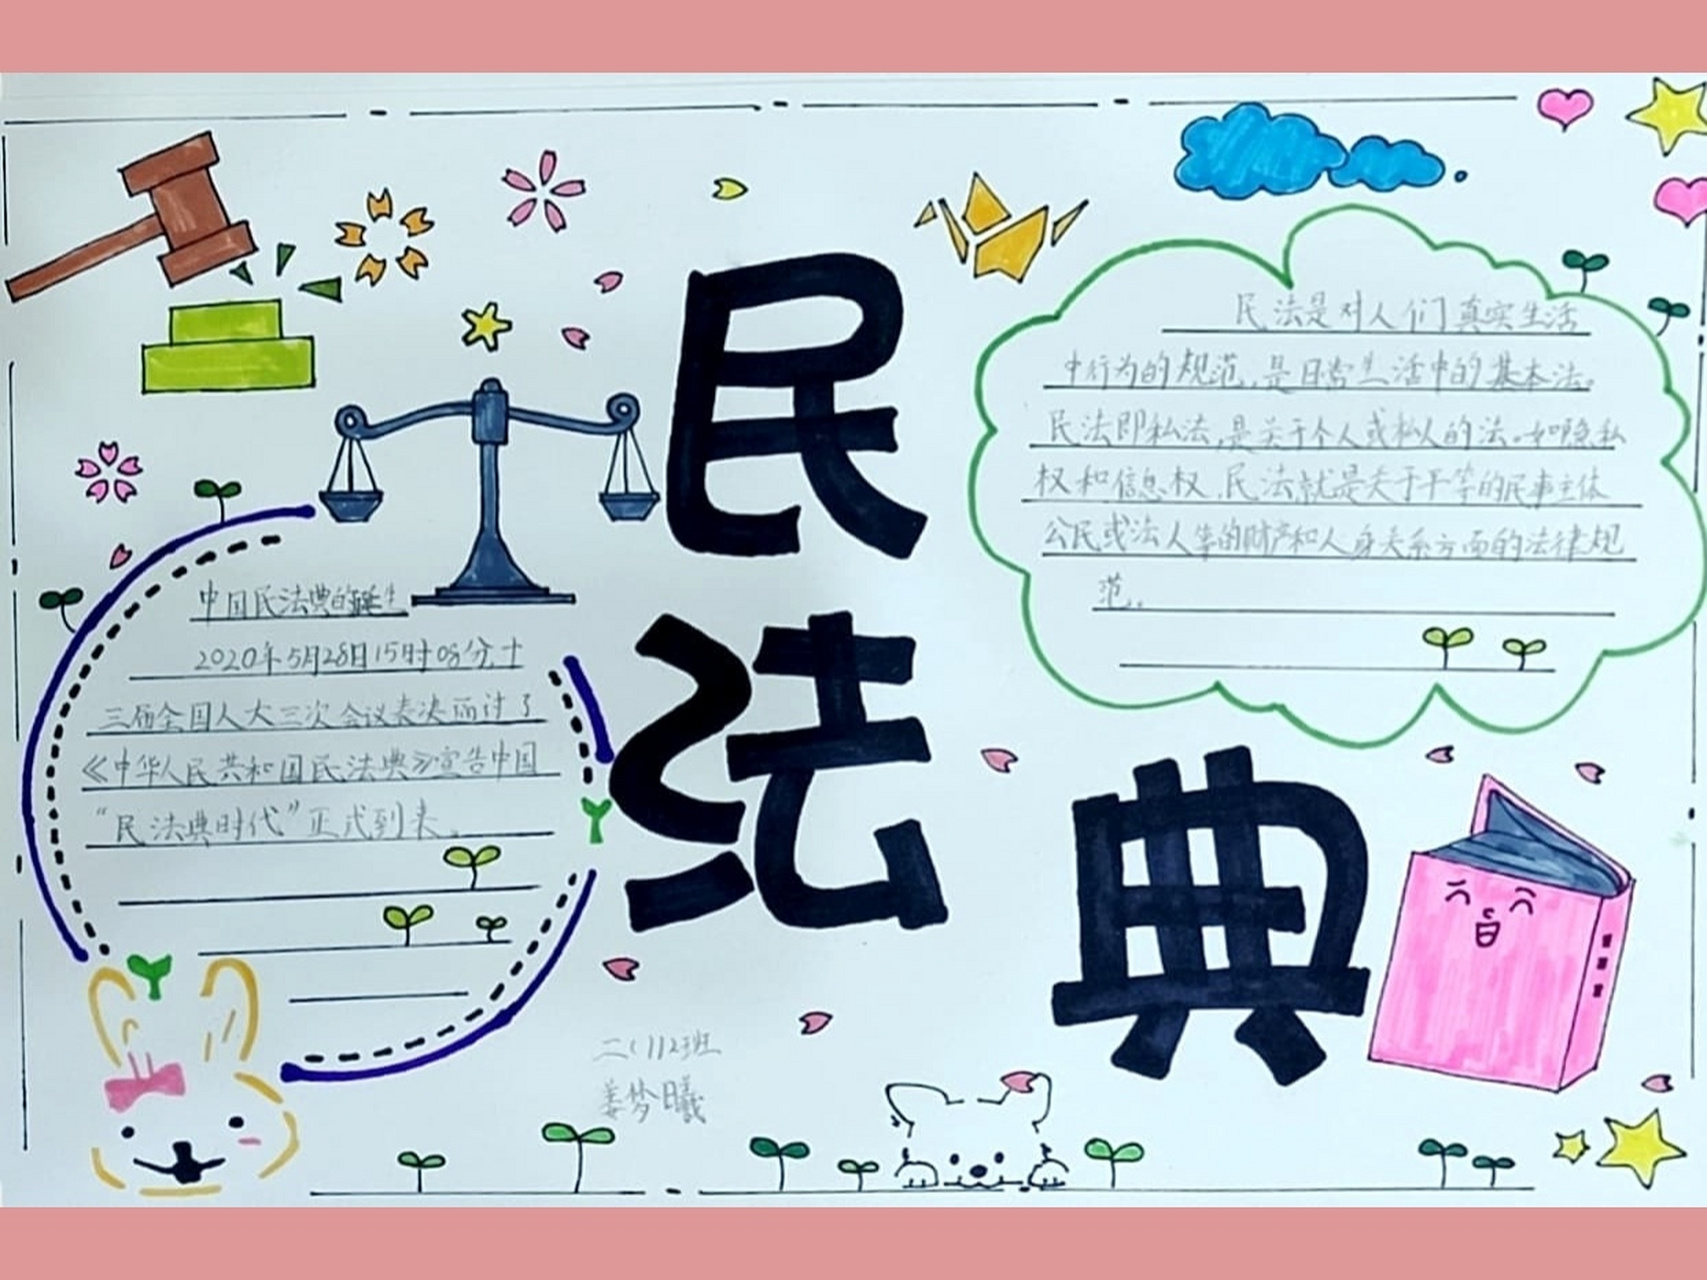 民
法
典
中国民法典的诞生
2020年5月28日15时08分十
三届全国人大三次会议表决通过了
《中华人民共和国民法典》宣告中国
“民法典时代”正式到来。
民法是对人们真实生活
中行为的规范,是日常生活中的基本法。
民法即私法,是关于个人或私人的法。如隐私
权和信息权,民法就是关于平等的民事主体
公民或法人等的财产和人身关系方面的法律规
范。
二(1)2班
姜梦曦